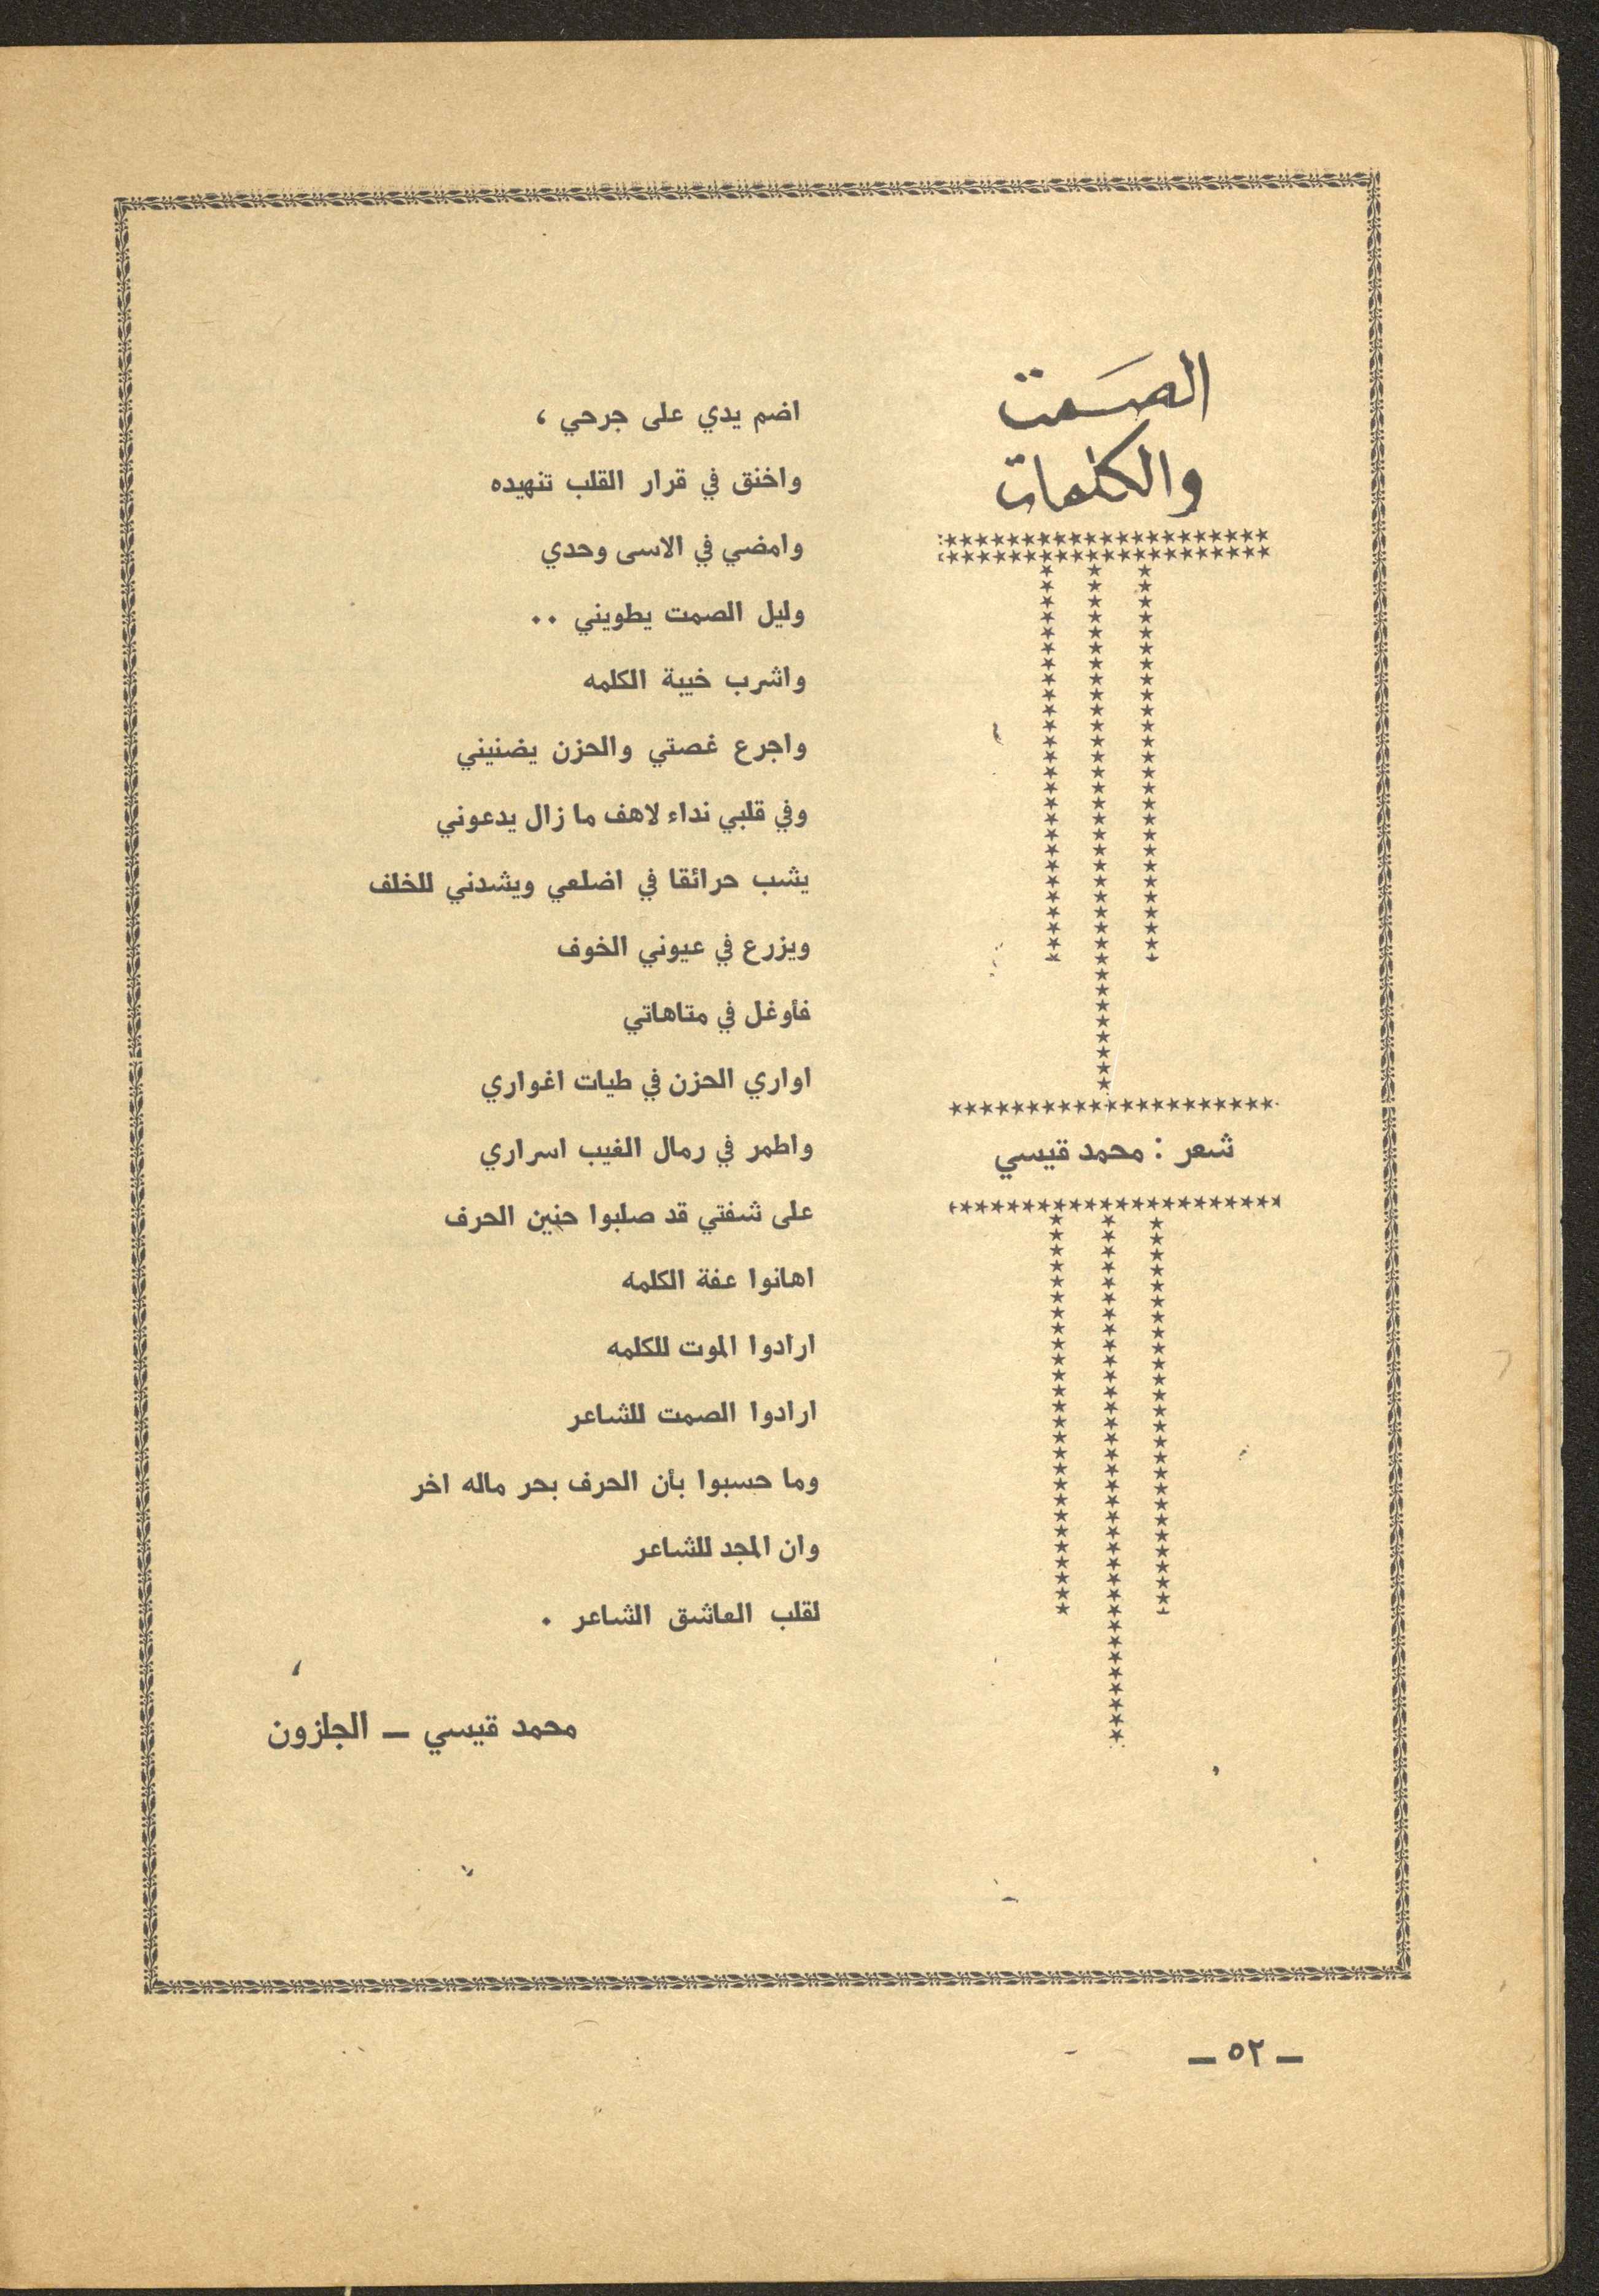 الصمت
والكلمات
شعر : محمد قيسي
اضم يدي على جرحي ،
واخنق في قرار القلب تنهيده
وامضي في الاسى وحدي
وليل الصمت يطويني ..
واشرب خيبة الكلمه
واجرع غصتي والحزن يضنيني
وفي قلبي نداء لاهف ما زال يدعوني
يشب حرائقا في اضلعي ويشدني للخلف
ويزرع في عيوني الخوف
فأوغل في متاهاتي
اواري الحزن في طيات اغواري
واطمر في رمال الغيب اسراري
على شفتي قد صلبوا حنين الحرف
اهانوا عفة الكلمه
ارادوا الموت للكلمه
ارادوا الصمت للشاعر
وما حسبوا بأن الحرف بحر ماله اخر
وان المجد للشاعر
لقلب العاشق الشاعر .
محمد قيسي — الجلزون
— ٥٢ —